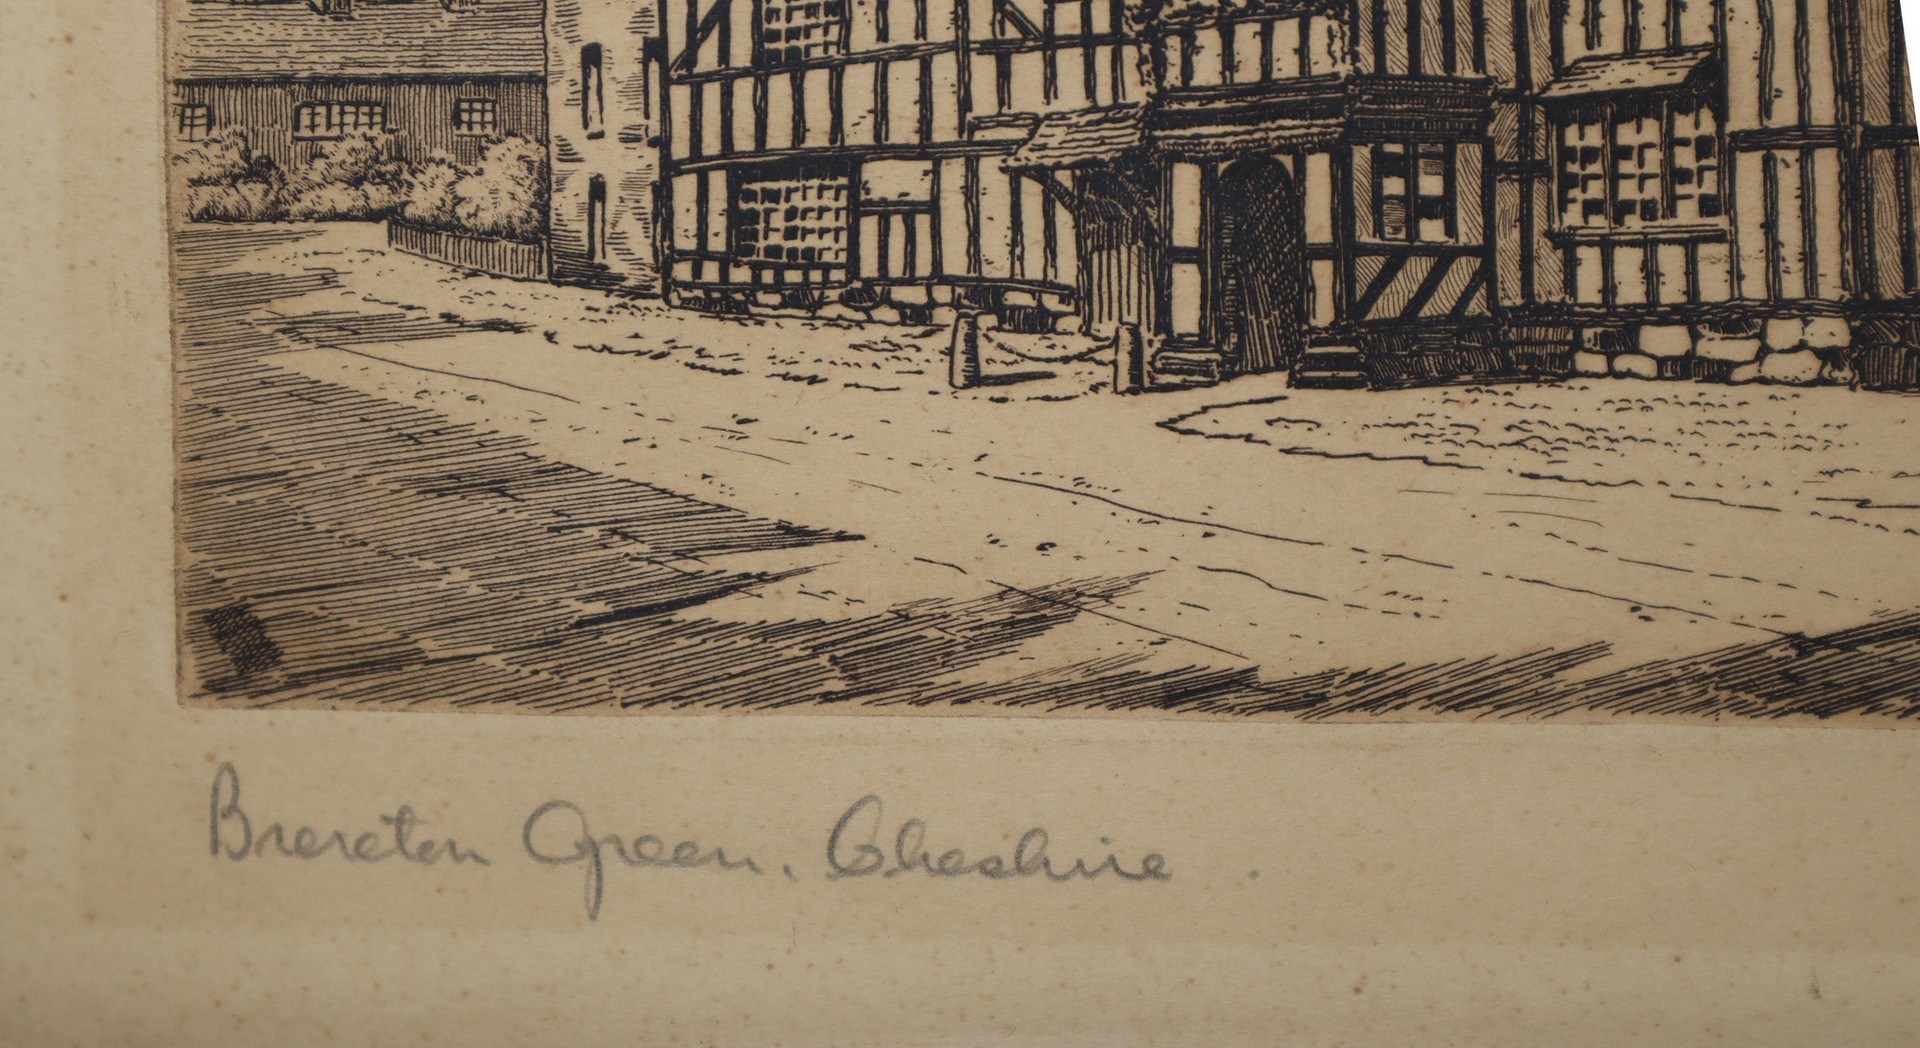 Brereton Green. Cheshire.